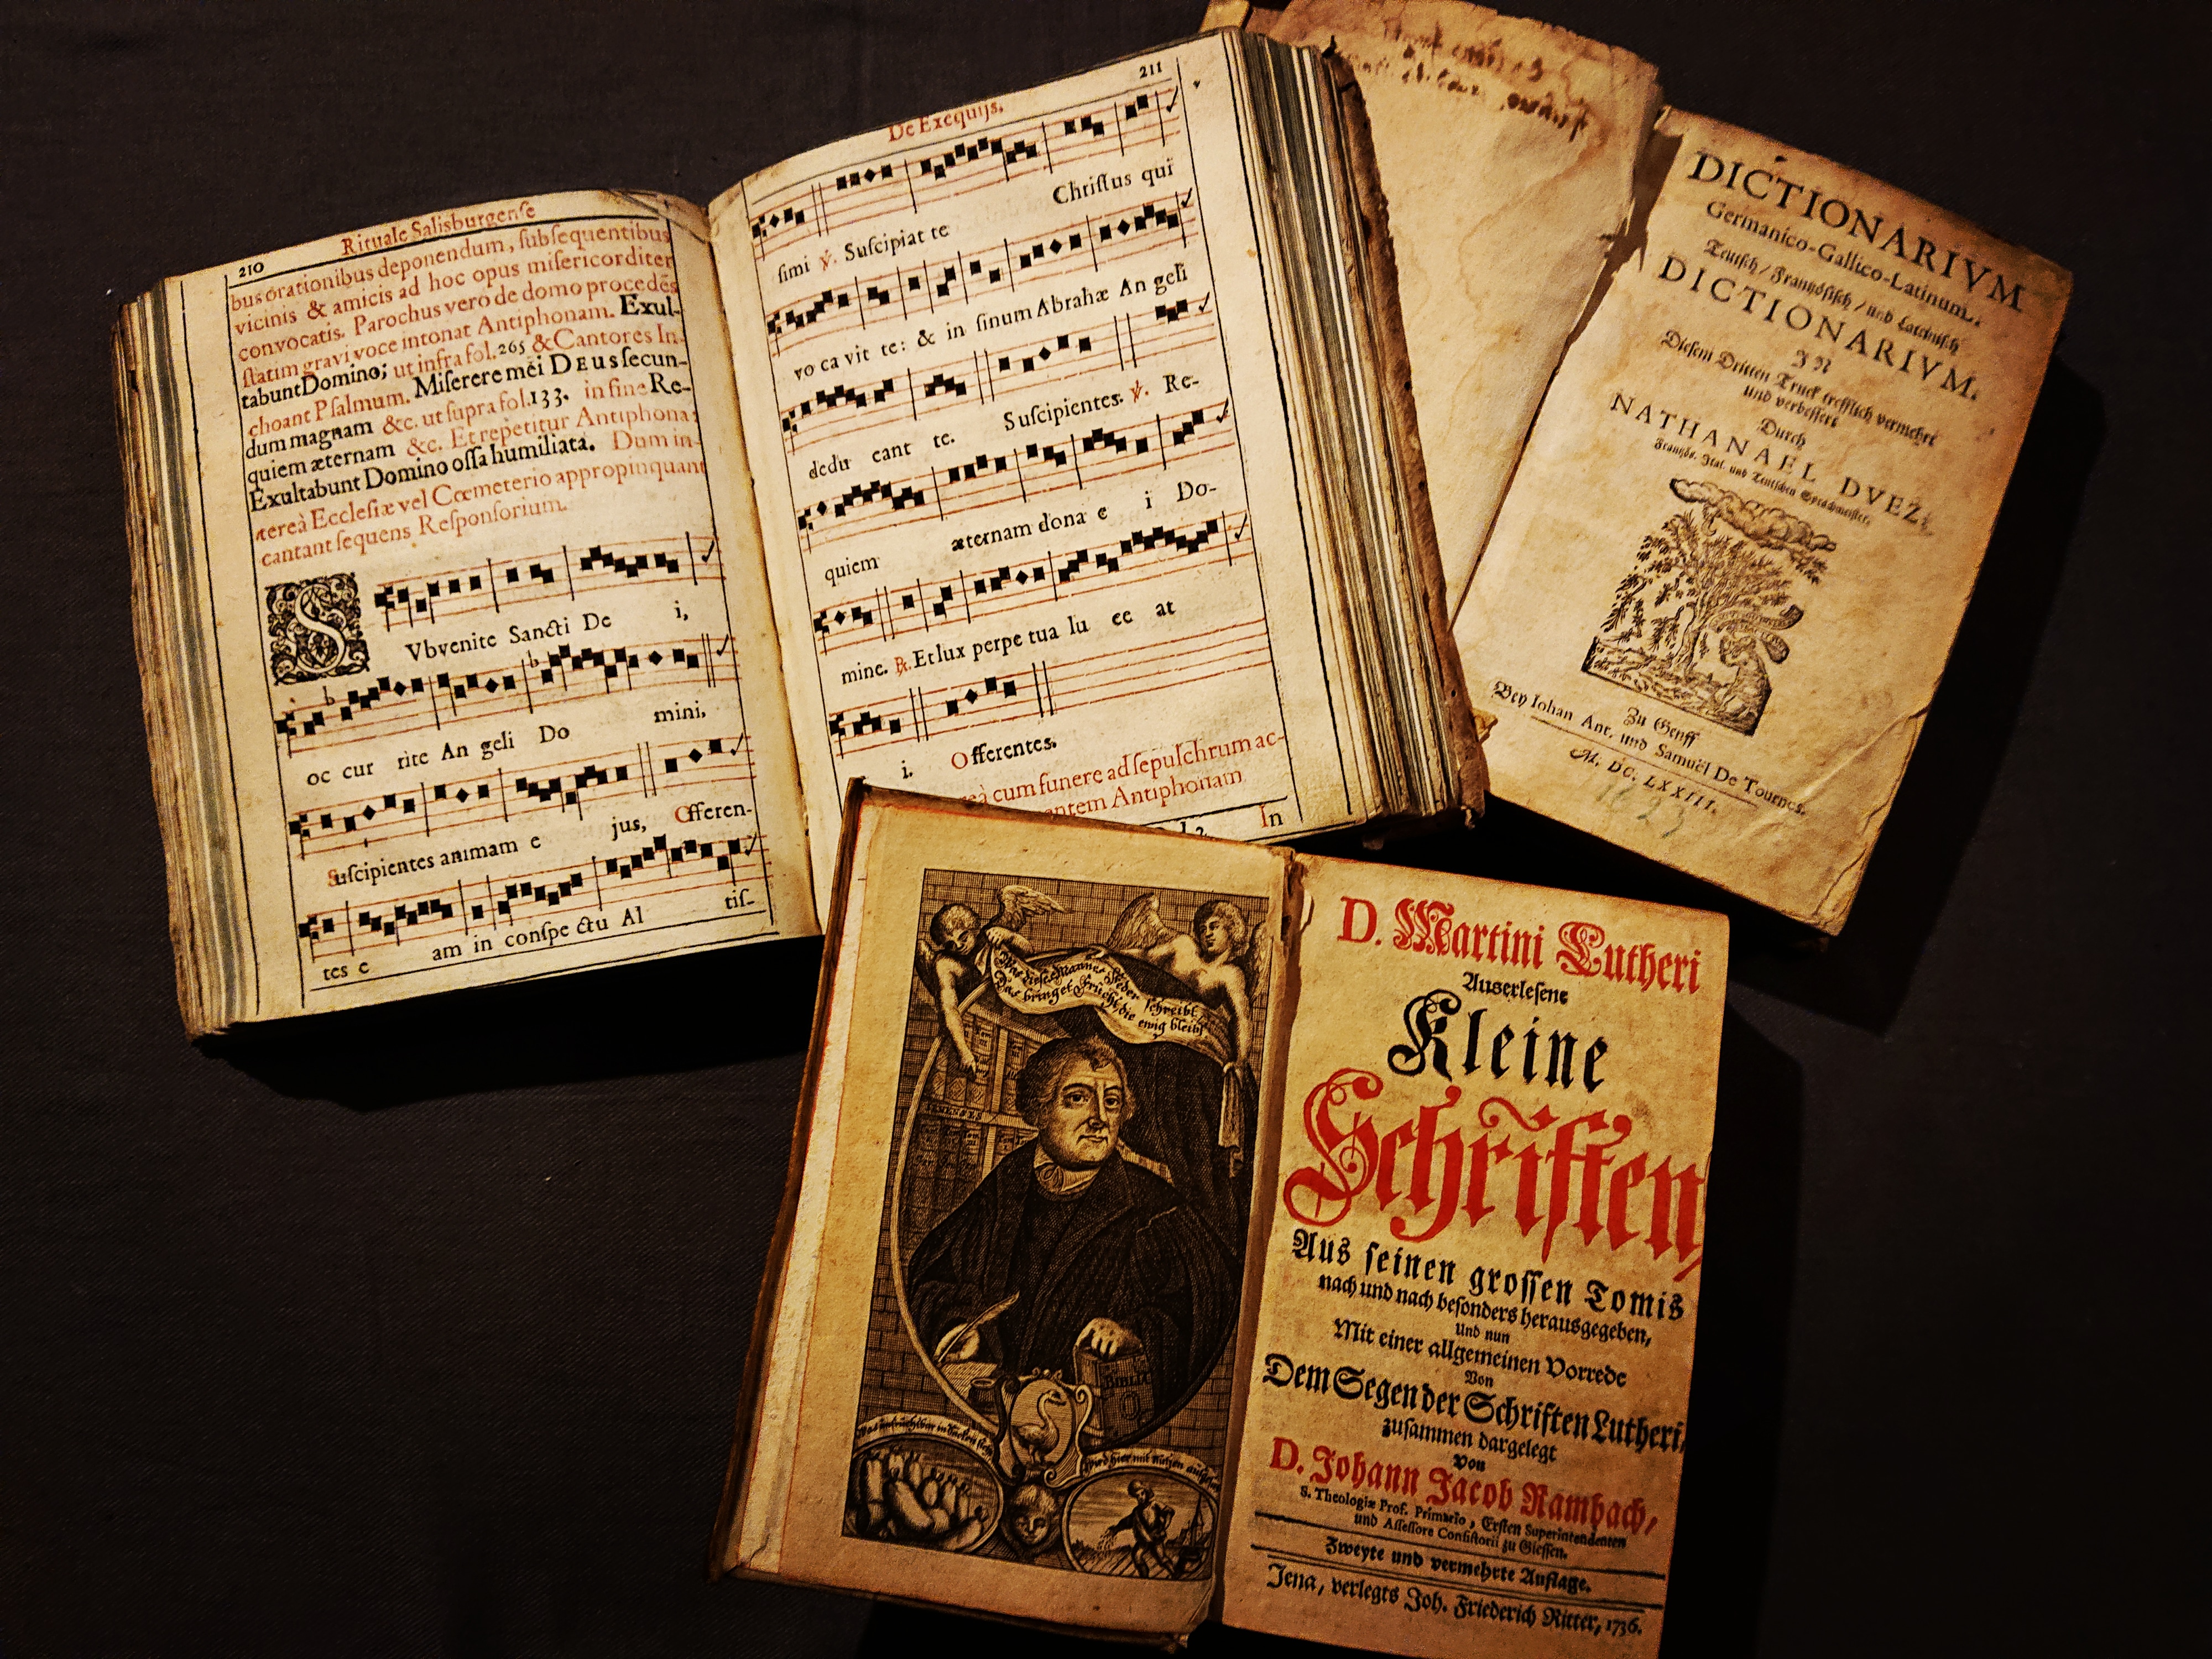 210
Rituale Salisburgense
bus orationibus deponendum, subsequentibus
vicinis & amicis ad hoc opus misericorditer
convocatis. Parochus vero de domo procedēs
statim gravi voce intonat Antiphonam. Exul-
tabunt Domino; ut infra fol. 265 & Cantores In-
choant Psalmum. Miserere mei DEus secun-
dum magnam &c. ut supra fol. 133. in fine Re-
quiem æternam &c. Et repetitur Antiphona:
Exultabunt Domino ossa humiliata. Dum in-
tereà Ecclesiæ vel Cœmeterio appropinquant
cantant sequens Responsorium.
SVbvenite Sancti De i,
oc cur rite An geli Do mini,
Suscipientes animam e jus, Offeren-
tes e am in conspe ctu Al tis-
211
De Exequijs.
simi ℣. Suscipiat te Christus qui
vo ca vit te: & in sinum Abrahæ An geli
dedu cant te. Suscipientes. ℣. Re-
quiem æternam dona e i Do-
mine. ℟. Et lux perpe tua lu ce at
i. Offerentes.
cum funere ad sepulchrum ac-
Antiphonam
In
DICTIONARIVM
Germanico-Gallico-Latinum.
Teutsch / Frantzösisch / und Lateinisch
DICTIONARIVM.
IN
Diesem Dritten Truck trefflich vermehrt
und verbessert
Durch
NATHANAEL DVEZ,
Frantzös. Ital. und Teutschen Sprachmeister.
Zu Genff
Bey Iohan Ant. und Samuël De Tournes.
M. DC. LXXIII.
Was dieses Mannes Feder schreibt,
Das bringet Frücht, die ewig bleibt
BIBLIA
D. Martini Lutheri
Auserlesene
Kleine
Schriften,
Aus seinen grossen Tomis
nach und nach besonders herausgegeben,
Und nun
Mit einer allgemeinen Vorrede
Von
Dem Segen der Schriften Lutheri,
zusammen dargelegt
Von
D. Johann Jacob Rambach,
S. Theologiæ Prof. Primario, Ersten Superintendenten
und Assessore Consistorii zu Giessen.
Zweyte und vermehrte Auflage.
Jena, verlegts Joh. Friederich Ritter, 1736.